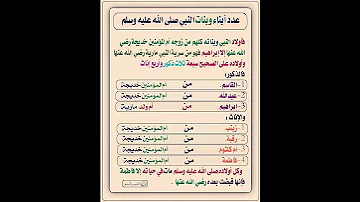 عدد أبناء وبنات النبي صلى الله عليه وسلم
فأولاد النبي وبناته كلهم من زوجه أم المؤمنين خديجة رضي
الله عنها إلا إبراهيم فهو من سرية النبي مارية رضي الله عنها
وأولاده على الصحيح سبعة ثلاث ذكور وأربع إناث
فالذكور:
1- القاسم. من أم المؤمنين خديجة
2- عبدالله من أم المؤمنين خديجة
3- إبراهيم من أم ولد مارية
والإناث:
1- زينب من أم المؤمنين خديجة
2- رقية من أم المؤمنين خديجة
3- أم كلثوم من أم المؤمنين خديجة
4- فاطمة من أم المؤمنين خديجة
وكل أولاده صلى الله عليه وسلم مات في حياته إلا فاطمة
فإنها قبضت بعده رضي الله عنها .